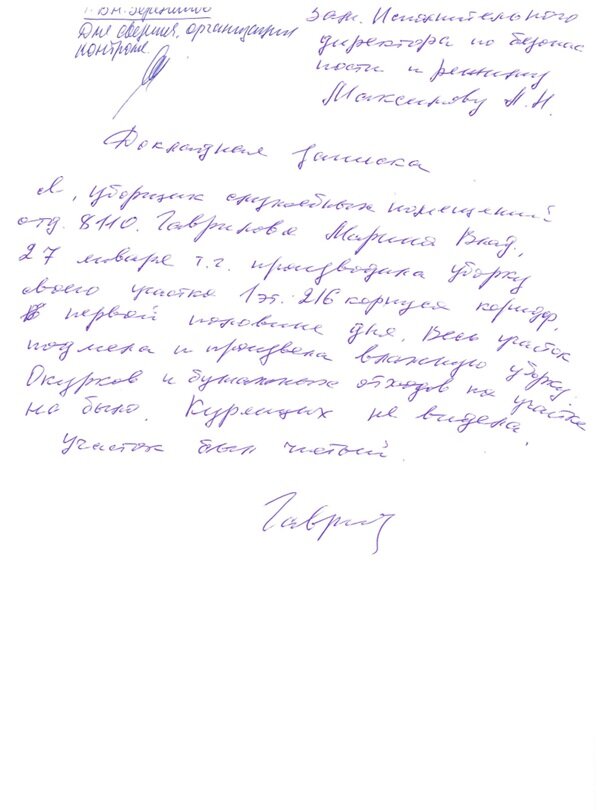 Для сверки, организации
контроля
Зам. Исполнительного
директора по безопас
ности и режиму
Максимову А.Н.
Докладная записка
Я, уборщик служебных помещений
отд. 8110. Гаврилова Марина Влад.,
27 января т.г. производила уборку
своего участка 1 эт. 216 корпуса коридор.
В первой половине дня. Весь участок
подмела и произвела влажную уборку.
Окурков и бумажных отходов на участке
не было. Курящих не видела.
Участок был чистый.